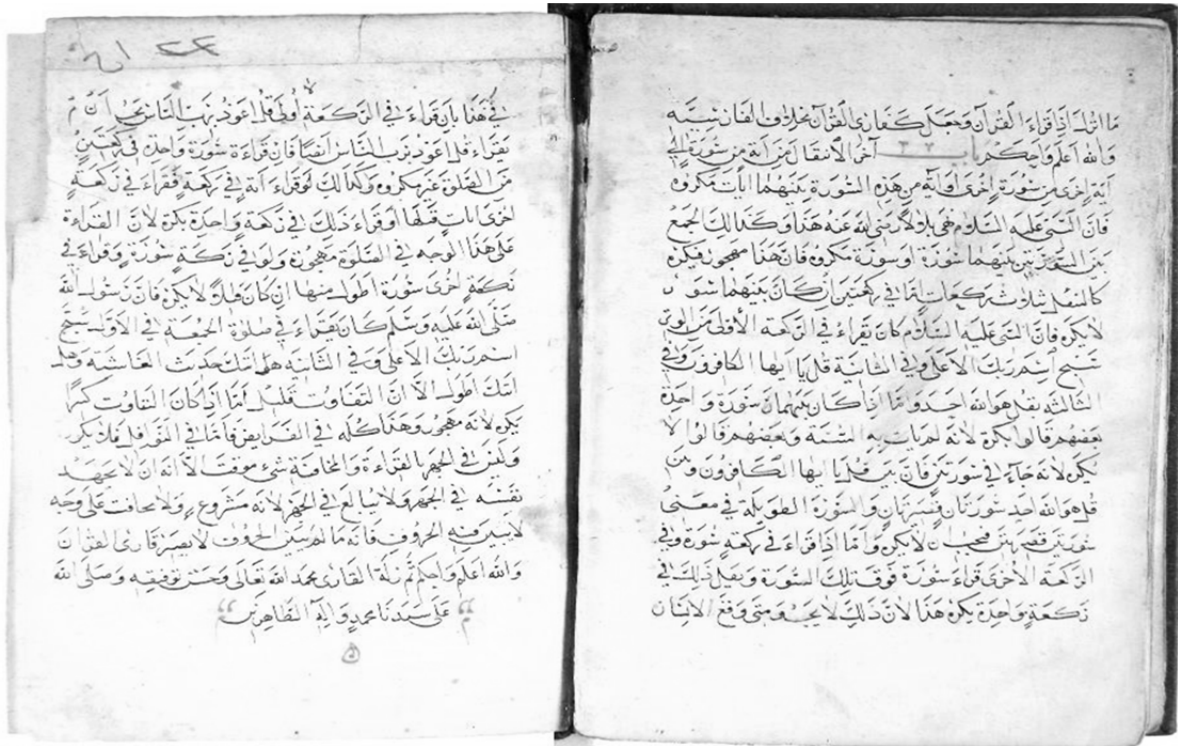 ما انزل اذا قراء القرآن وجعل كقارئ القرآن بخلاف الفنان شبّه
والله اعلم واحكم باب آخر الانتقال من آية من سورة الى
آية اخرى من سورة اخرى او آية من هذه السورة بينهما ايات مكروه
فان النبى عليه السلام نهى بلالا رضى الله عنه هذا وكذالك الجمع
بين السورتين بينهما سورة او سورة مكروه فان هذا مهجور فيكره
ركعات فى ركعتين ان كان بينهما سور
لا يكره فان النبى عليه السلام كان يقراء فى الركعة الأولى من الوتر
سبح اسم ربك الاعلى وفى الثانية قل يا ايها الكافرون وفى
الثالثة بقل هو الله احد واما اذا كان بينهما سورة واحدة
بعضهم قالوا يكره لانه لم يات به السنة وبعضهم قالوا لا
يكره لانه جاء فى سورتين فان بين قل يا ايها الكافرون وبين
قل هو الله احد سورتان قصيرتان والسورة الطويلة فى معنى
سورتين قصيرتين فيجب ان لا يكره واما اذا قراء فى ركعة سورة وفى
الركعة الأخرى قراء سورة فوق تلك السورة او فعل ذلك فى
ركعة واحدة يكره هذا لان ذلك لا يجب ومتى وقع الانسان
٢٤
فى هذا بان قراء فى الركعة الاولى قل اعوذ برب الناس يجب ان
يقراء قل اعوذ برب الناس ايضا فان قراءة سورة واحدة فى ركعتين
من الصلوة غير مكروه وكذالك لو قراء آية فى ركعة فقراء فى ركعة
اخرى ايات قبلها او قراء ذلك فى ركعة واحدة يكره لان القراءة
على هذا الوجه فى الصلوة مهجورة ولو فى ركعة سورة وقراء فى
ركعة اخرى سورة اطول منها ان كان لا يكره فان رسول الله
صلى الله عليه وسلم كان يقراء فى صلوة الجمعة فى الاولى سبح
اسم ربك الاعلى وفى الثانية هل اتيك حديث الغاشية وهل
اتيك اطول الا ان التفاوت قليل اما اذا كان التفاوت كثيرا
يكره لانه مهجور وهذا كله فى الفرايض فاما فى النوافل فلا يكره
وليس فى الجهر بالقراءة والمخافتة شىء موقت الا انه ان لا يجهد
نفسه فى الجهر ولا يبالغ فى الجهر لانه مشروع ولا يخافت على وجه
لا يبين فيه الحروف فانه ما لم يبين الحروف لا يصير قارئ القرآن
والله اعلم واحكم تم زلة القارى بحمد الله تعالى وحسن توفيقه وصلى الله
على سيدنا محمد وآله الطاهرين